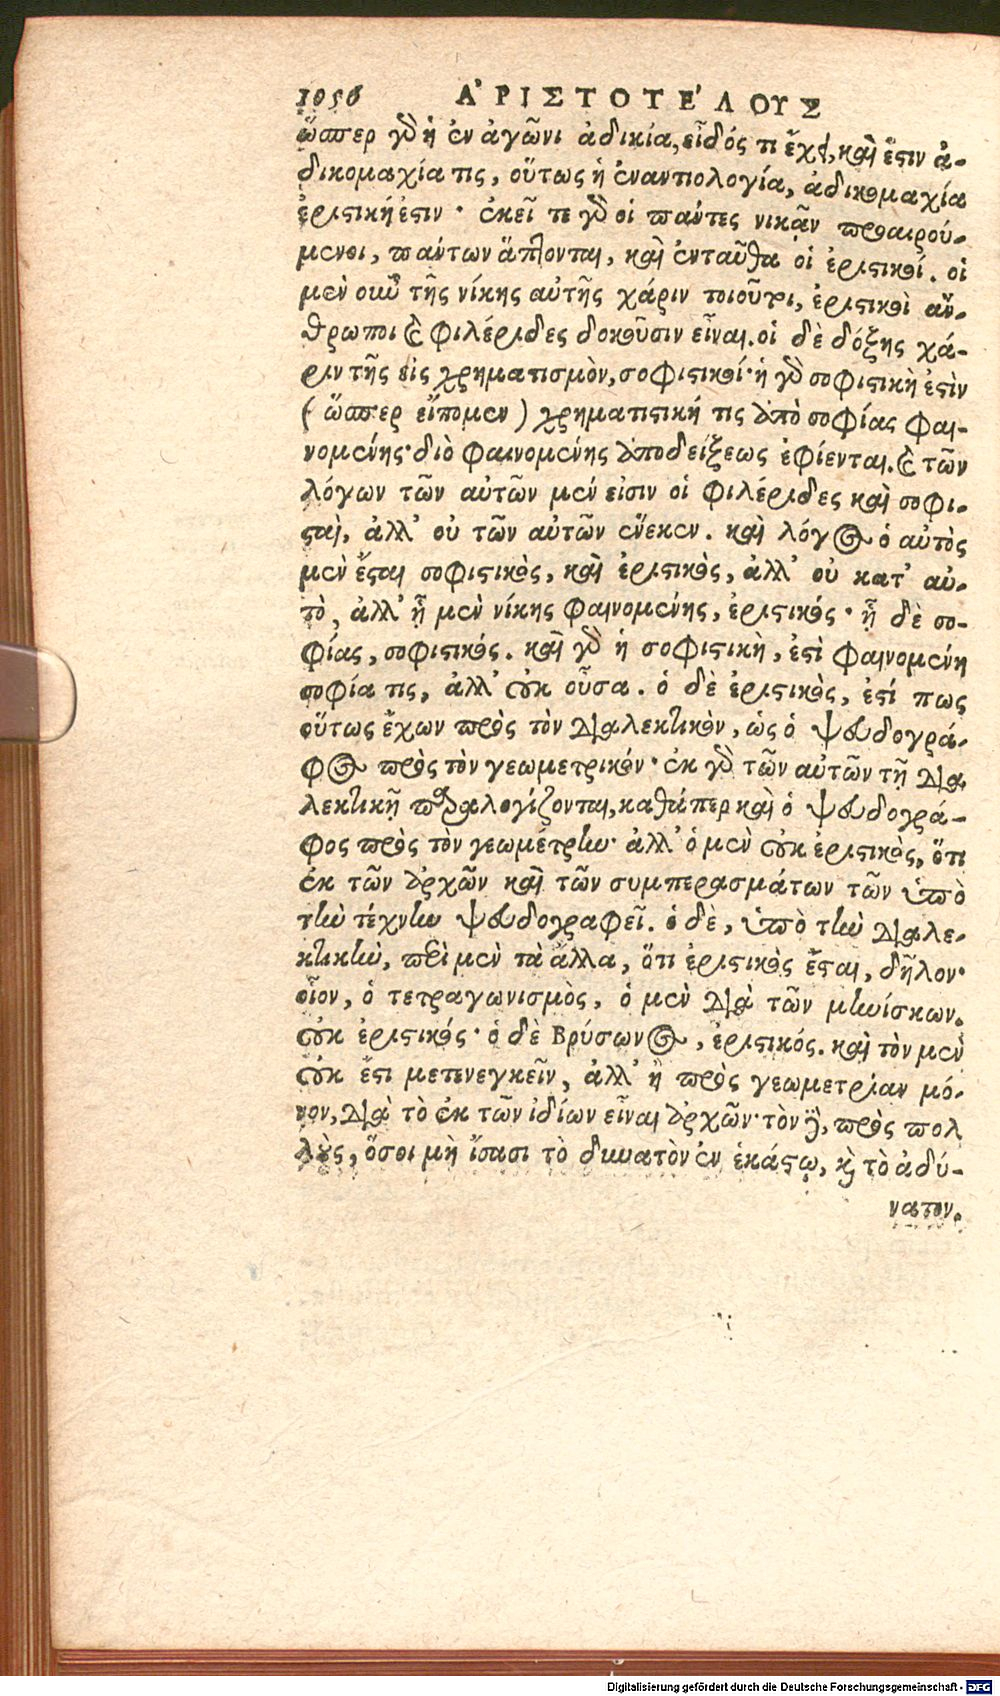 1056 ἈΡΙΣΤΟΤΕ´ΛΟΥΣ
ὥσπερ γὸ ἡ ἐν ἀγῶνι ἀδικία, εἶδός τι ἔχει, καὶ ἔστιν ἀ-
δικομαχία τις, οὕτως ἡ ἐναντιολογία, ἀδικομαχία
ἐριστική ἐστιν · ἐκεῖ τε γὸ οἱ πάντες νικᾷν προαιρού-
μενοι, πάντων ἅπτονται, καὶ ἐνταῦθα οἱ ἐριστικοί. οἱ
μὲν οὖν τῆς νίκης αὐτῆς χάριν ποιοῦσι, ἐριστικοὶ ἄν-
θρωποι καὶ φιλέριδες δοκοῦσιν εἶναι. οἱ δὲ δόξης χά-
ριν τῆς εἰς χρηματισμὸν, σοφιστικοί· ἡ γὸ σοφιστικὴ ἐστὶν
(ὥσπερ εἴπομεν) χρηματιστική τις ἀπὸ σοφίας φαι-
νομένης· διὸ φαινομένης ἀποδείξεως ἐφίενται. καὶ τῶν
λόγων τῶν αὐτῶν μέν εἰσιν οἱ φιλέριδες καὶ σοφι-
σταὶ, ἀλλ' οὐ τῶν αὐτῶν ἕνεκεν. καὶ λόγος ὁ αὐτὸς
μὲν ἔσται σοφιστικὸς, καὶ ἐριστικὸς, ἀλλ' οὐ κατ' αὐ-
τὸ, ἀλλ' ᾗ μὲν νίκης φαινομένης, ἐριστικός · ᾗ δὲ σο-
φίας, σοφιστικός. καὶ γὸ ἡ σοφιστικὴ, ἐστὶ φαινομένη
σοφία τις, ἀλλ' οὐκ οὖσα. ὁ δὲ ἐριστικὸς, ἐστί πως
οὕτως ἔχων πρὸς τὸν διαλεκτικὸν, ὡς ὁ ψευδογρά-
φος πρὸς τὸν γεωμετρικόν · ἐκ γὸ τῶν αὐτῶν τῇ δια
λεκτικῇ παραλογίζονται, καθάπερ καὶ ὁ ψευδογρά-
φος πρὸς τὸν γεωμέτρην· ἀλλ' ὁ μὲν οὐκ ἐριστικὸς, ὅτι
ἐκ τῶν ἀρχῶν καὶ τῶν συμπερασμάτων τῶν ὑπὸ
τὴν τέχνην ψευδογραφεῖ. ὁ δὲ, ὑπὸ τὴν διαλε-
κτικὴν, περὶ μὲν τὰ ἄλλα, ὅτι ἐριστικὸς ἔσται, δῆλον·
οἷον, ὁ τετραγωνισμὸς, ὁ μὲν διὰ τῶν μηνίσκων.
οὐκ ἐριστικός · ὁ δὲ Βρύσωνος, ἐριστικός. καὶ τὸν μὲν
οὐκ ἔστι μετενεγκεῖν, ἀλλ' ἢ πρὸς γεωμετρίαν μό-
νον, διὰ τὸ ἐκ τῶν ἰδίων εἶναι ἀρχῶν· τὸν δὲ, πρὸς πολ
λοὺς, ὅσοι μὴ ἴσασι τὸ δυνατὸν ἐν ἑκάστῳ, καὶ τὸ ἀδύ-
νατον.
Digitalisierung gefördert durch die Deutsche Forschungsgemeinschaft - DFG